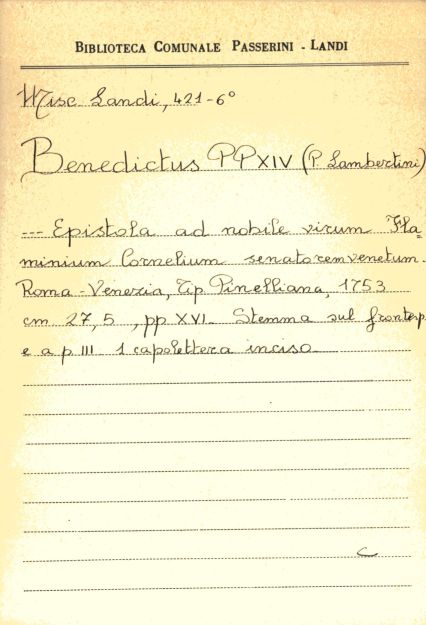 BIBLIOTECA COMUNALE PASSERINI - LANDI
Misc. Landi, 421-6°
Benedictus PP XIV (P. Lambertini)
--- Epistola ad nobile virum Fla=
minium Cornelium senatorem venetum.
Roma-Venezia, Tip. Pinelliana, 1753
cm 27,5, pp XVI. Stemma sul frontesp.
e a p. III 1 capolettera inciso.
C